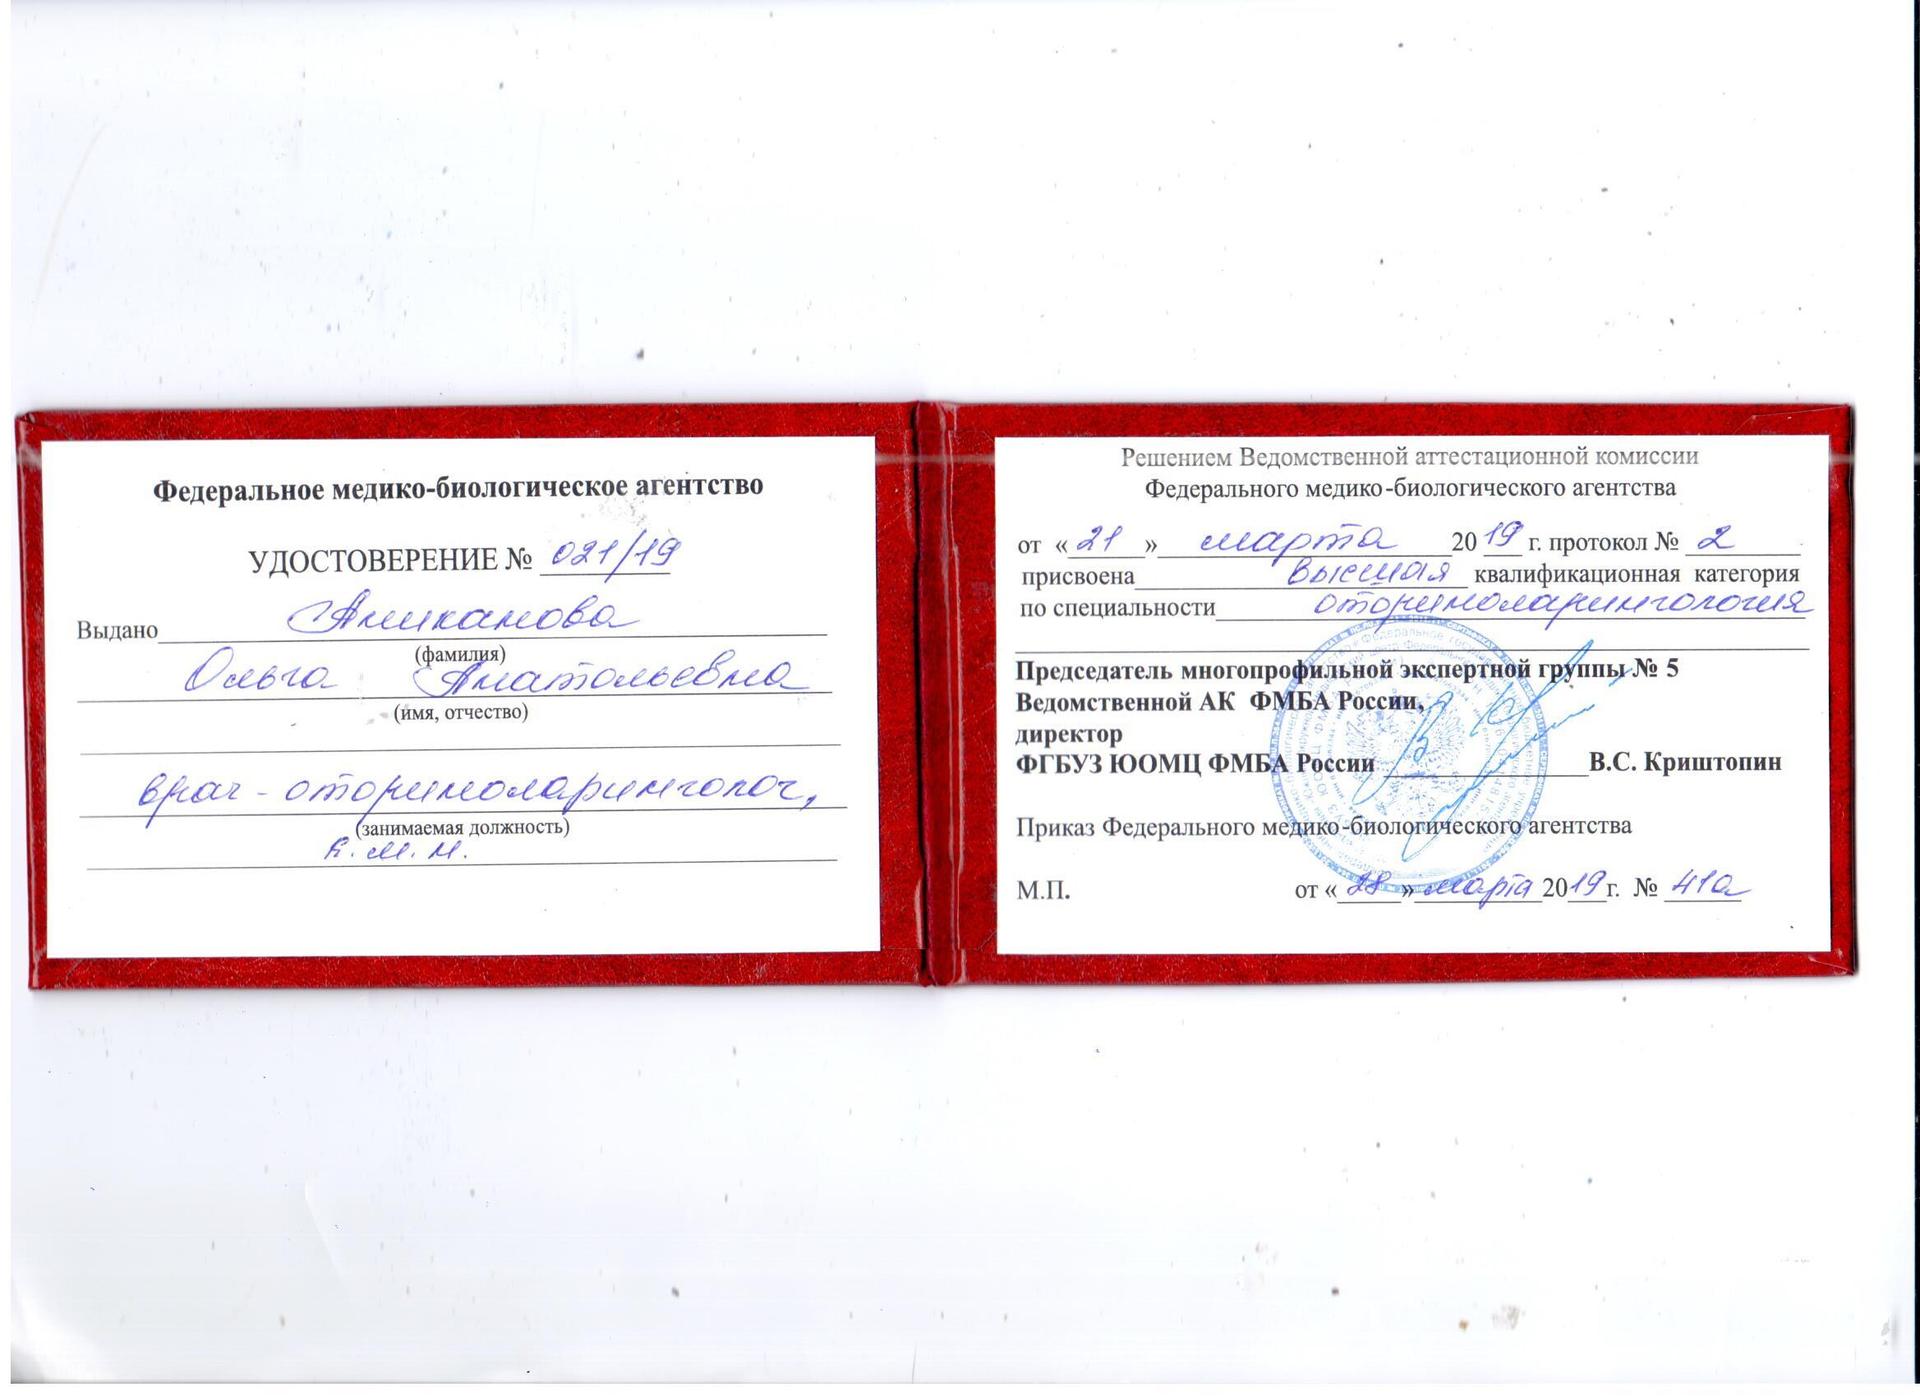 Федеральное медико-биологическое агентство
УДОСТОВЕРЕНИЕ № 021/19
Выдано Аниканова
(фамилия)
Ольга Анатольевна
(имя, отчество)
врач - оториноларинголог,
(занимаемая должность)
к.м.н.
Решением Ведомственной аттестационной комиссии
Федерального медико-биологического агентства
от «21» марта 2019 г. протокол № 2
присвоена высшая квалификационная категория
по специальности оториноларингология
Председатель многопрофильной экспертной группы № 5
Ведомственной АК ФМБА России,
директор
ФГБУЗ ЮОМЦ ФМБА России В.С. Криштопин
Приказ Федерального медико-биологического агентства
М.П. от «28» марта 2019г. № 41а